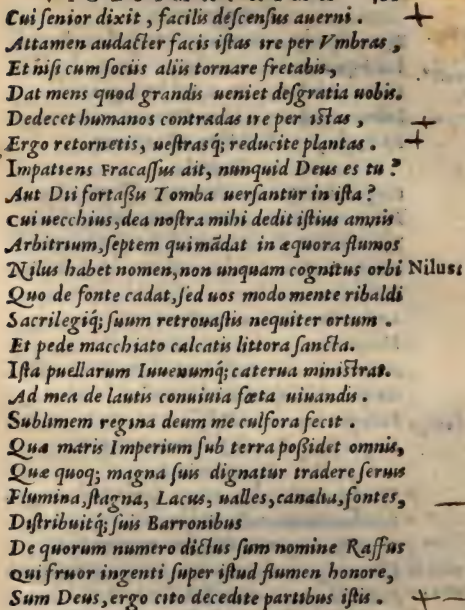 Cui senior dixit, facilis descensus auerni.
Attamen audacter facis istas ire per Vmbras,
Et nisi cum sociis aliis tornare fretabis,
Dat mens quod grandis ueniet desgratia uobis.
Dedecet humanos contradas ire per istas,
Ergo retornetis, uestrasq; reducite plantas.
Impatiens Fracassus ait, nunquid Deus es tu?
Aut Dii fortassis Tomba uersantur in ista?
Cui uecchius, dea nostra mihi dedit istius amnis
Arbitrium, septem qui mãdat in æquora flumos
Nilus habet nomen, non unquam cognitus orbi Nilus:
Quo de fonte cadat, sed uos modo mente ribaldi
Sacrilegiq; suum retrouastis nequiter ortum.
Et pede macchiato calcatis littora sancta.
Ista puellarum Iuuenumq; caterua ministrat.
Ad mea de lautis conuiuia fœta uiuandis.
Sublimem regina deum me culfora fecit.
Quæ maris Imperium sub terra possidet omnis,
Quæ quoq; magna suis dignatur tradere seruis
Flumina, stagna, Lacus, ualles, canalia, fontes,
Distribuitq; suis Barronibus
De quorum numero dictus sum nomine Raffus
Qui fruor ingenti super istud flumen honore,
Sum Deus, ergo cito decedite partibus istis.